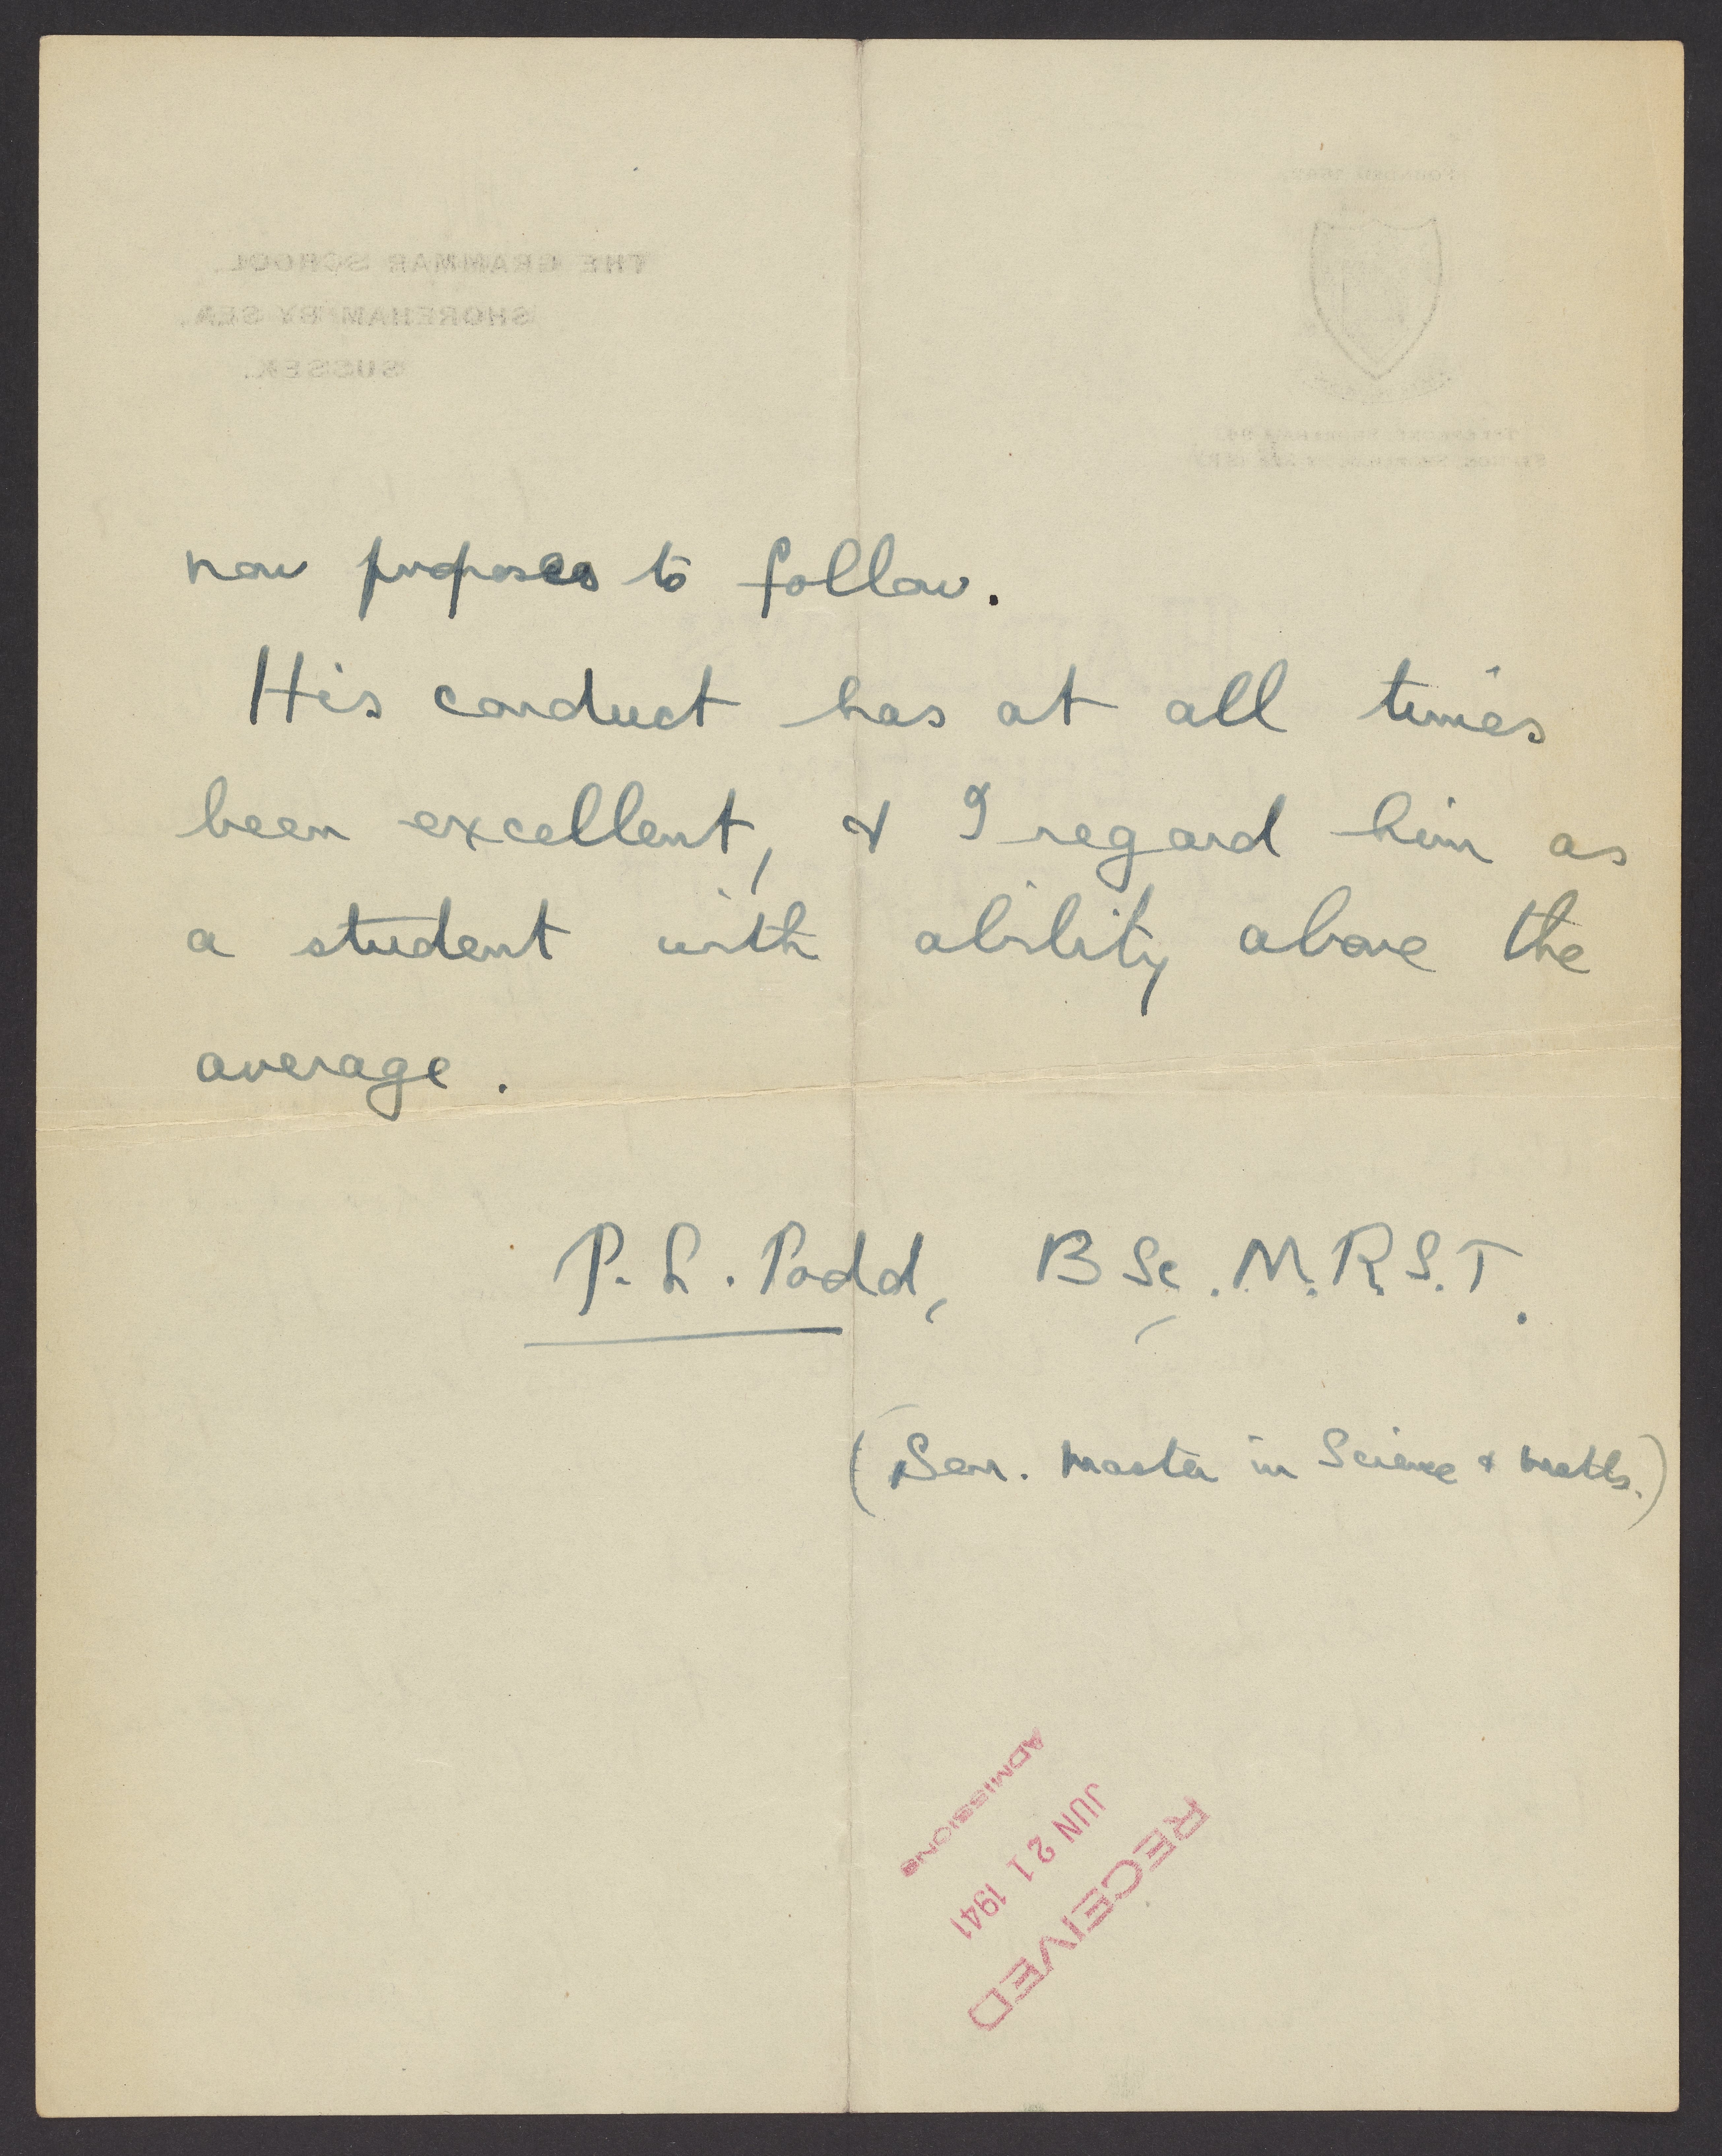 now proposes to follow.
His conduct has at all times
been excellent, & I regard him as
a student with ability above the
average.
P. L. Podd, BSc. M.R.S.T.
(Sen. Master in Science & Maths.)
ADMISSIONS
JUN 21 1941
RECEIVED
THE GRAMMAR SCHOOL,
SHOREHAM BY SEA,
SUSSEX.